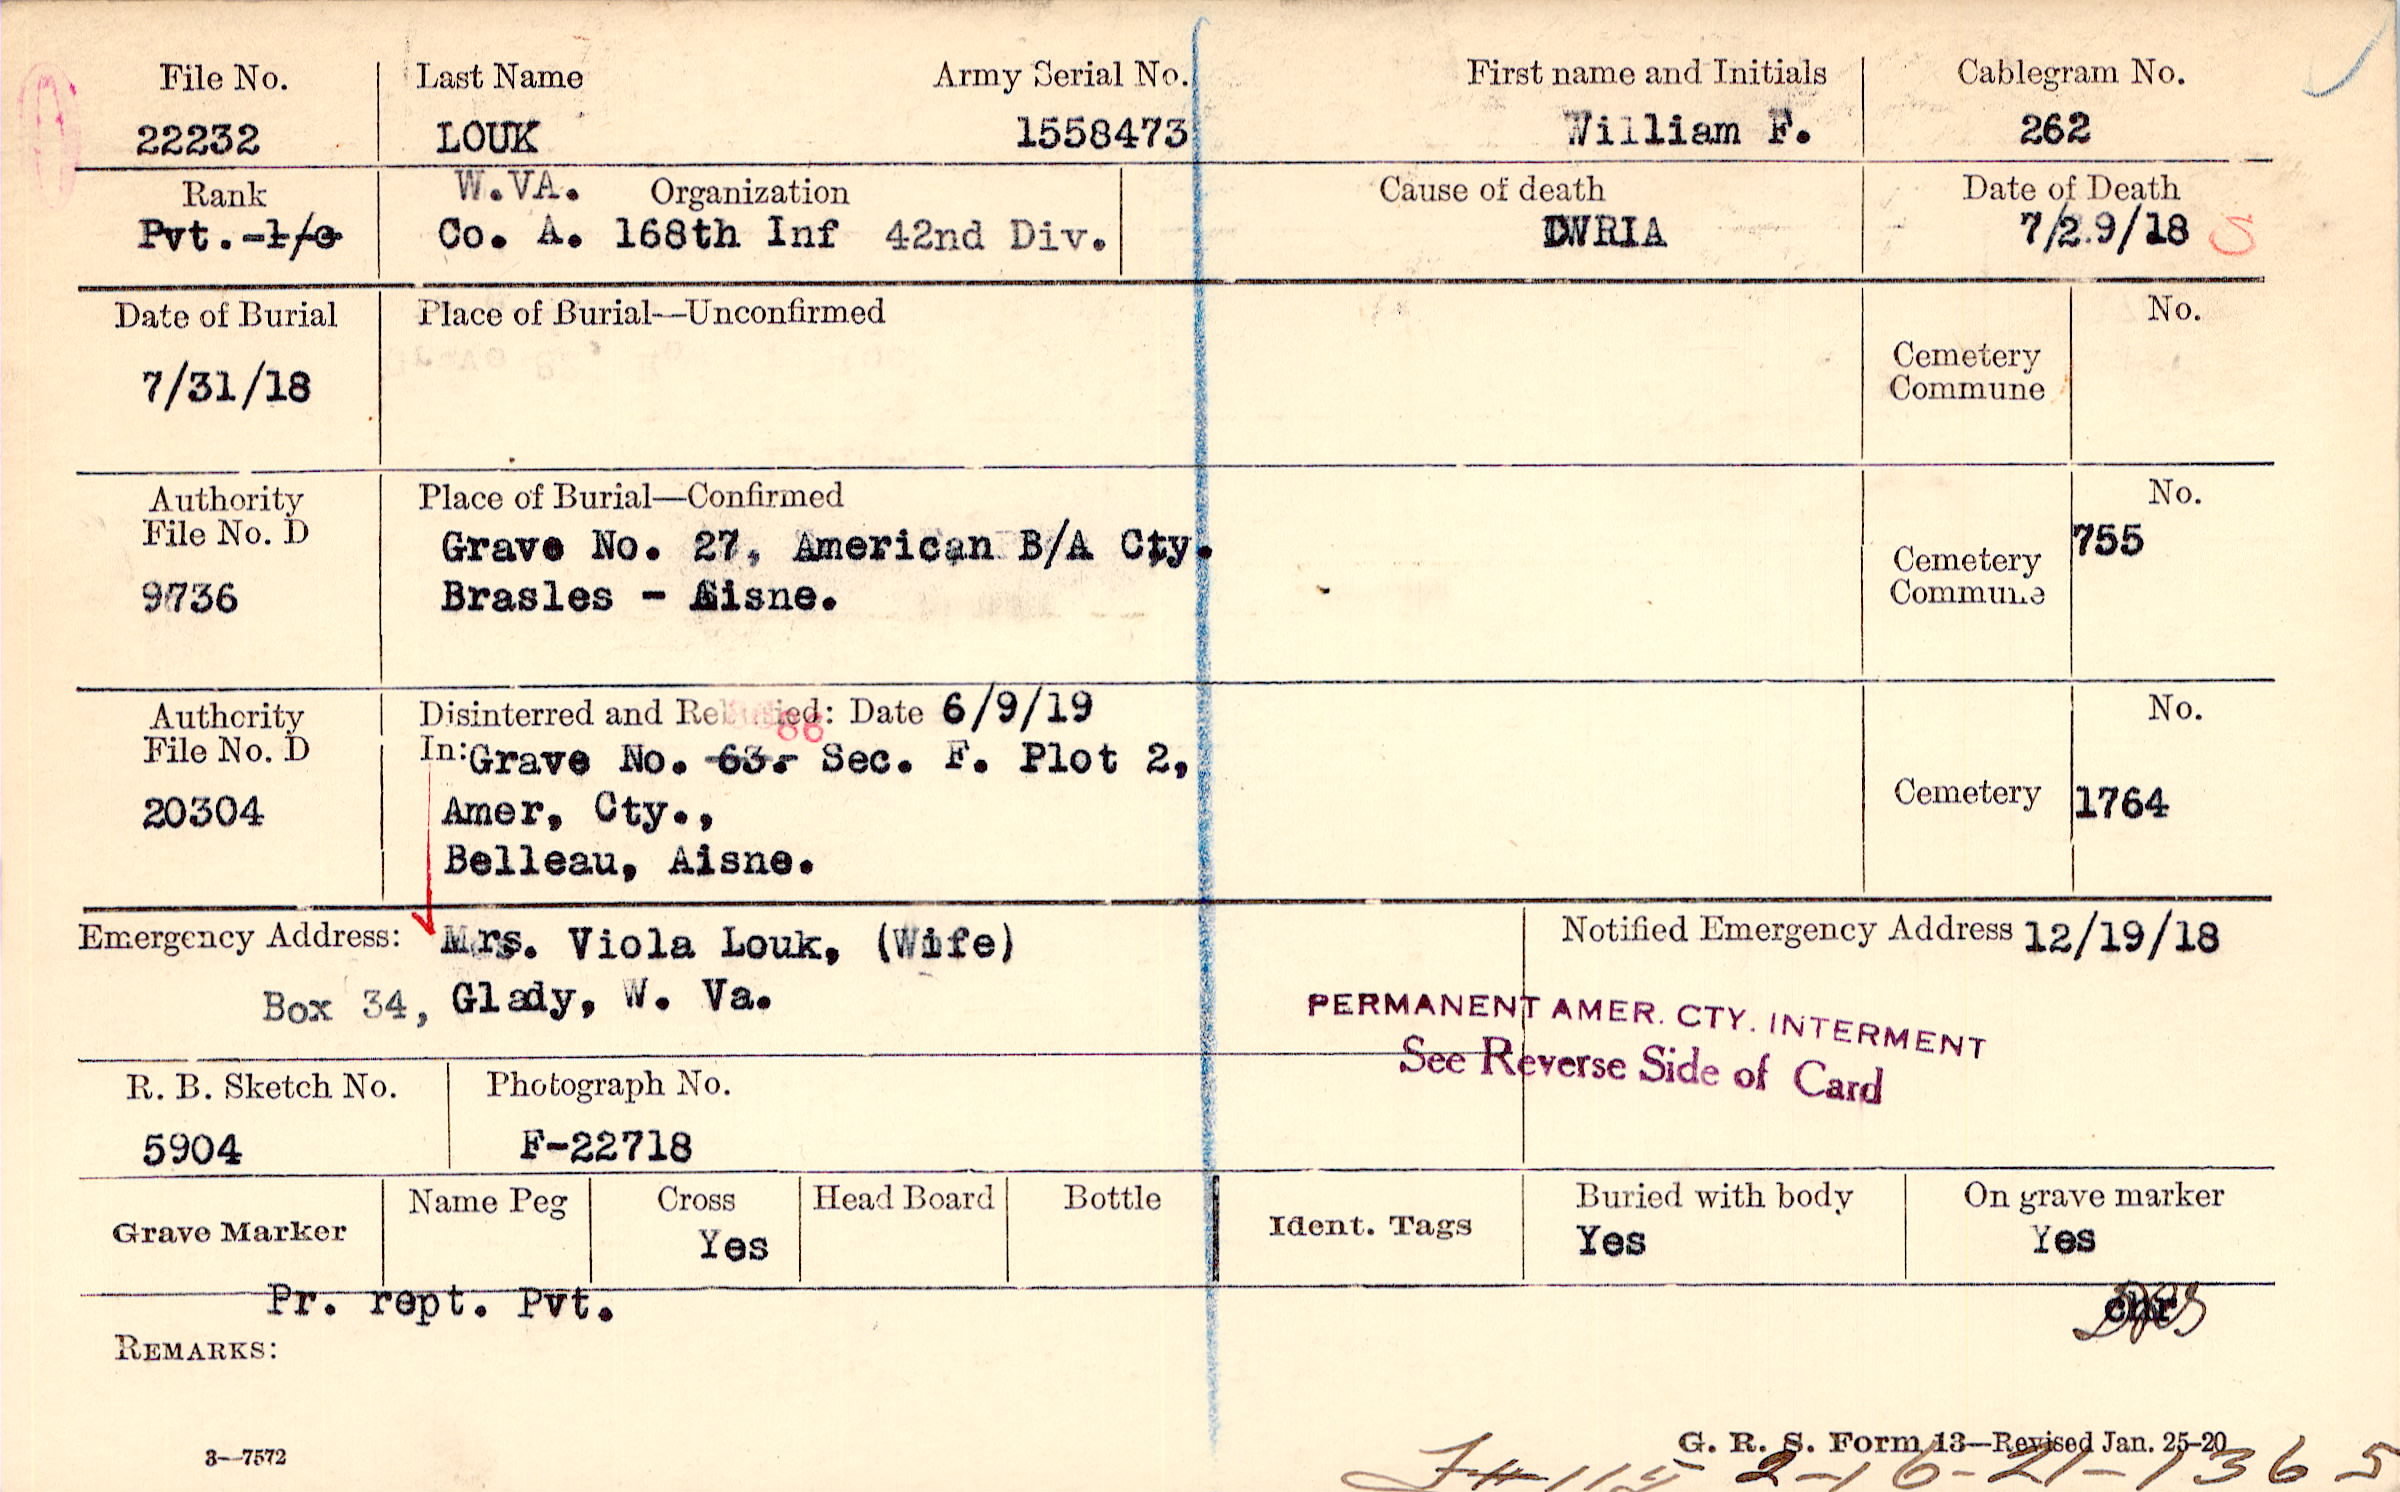 File No. Last Name Army Serial No. First name and Initials Cablegram No.
22232 LOUK 1558473 William F. 262
Rank W.VA. Organization Cause of death Date of Death
Pvt. 1/c Co. A. 168th Inf 42nd Div. DWRIA 7/29/18 S
Date of Burial Place of Burial—Unconfirmed No.
7/31/18 Cemetery
Commune
Authority Place of Burial—Confirmed No.
File No. D Grave No. 27, American B/A Cty. Cemetery 755
9736 Brasles - Aisne. Commune
Authority Disinterred and Reburied: Date 6/9/19 No.
86
File No. D In: Grave No. 63. Sec. F. Plot 2,
20304 Amer, Cty., Cemetery 1764
Belleau, Aisne.
Emergency Address: Mrs. Viola Louk, (Wife) Notified Emergency Address 12/19/18
Box 34, Glady, W. Va.
PERMANENT AMER. CTY. INTERMENT
See Reverse Side of Card
R. B. Sketch No. Photograph No.
5904 F-22718
Grave Marker Name Peg Cross Head Board Bottle Ident. Tags Buried with body On grave marker
Yes Yes Yes
Pr. rept. Pvt. chr
REMARKS:
3—7572 G. R. S. Form 13—Revised Jan. 25-20
2-16-21-1365